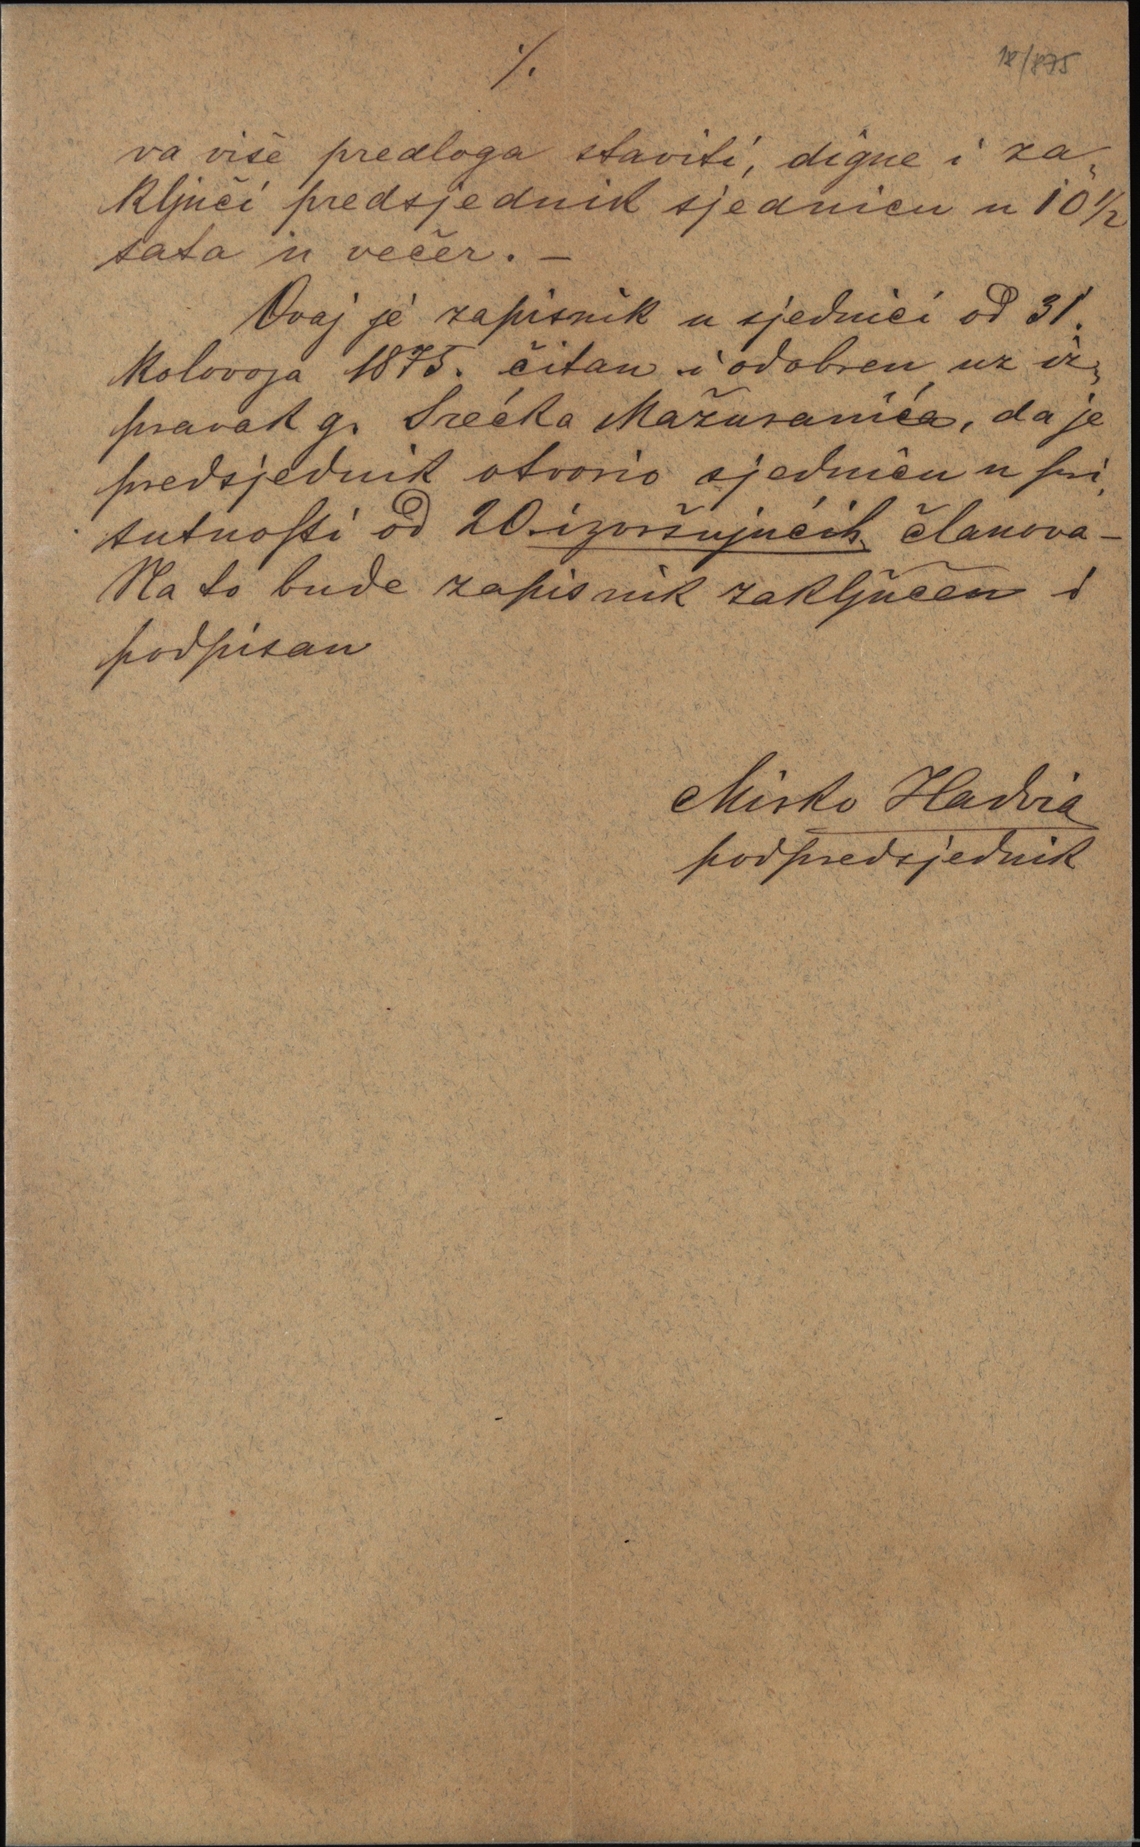 18/875
./.
va više predloga staviti, digne i za„
ključi predsjednik sjednicu u 10 1/2
sata u večer. –
Ovaj je zapisnik u sjednici od 31.
kolovoza 1875. čitan i odobren uz iz„
pravak g. Srećka Mažuranića, da je
predsjednik otvorio sjednicu u pri„
sutnosti od 20 izvršujućih članova –
Na to bude zapisnik zaključen i
podpisan
Mirko
podpredsjednik